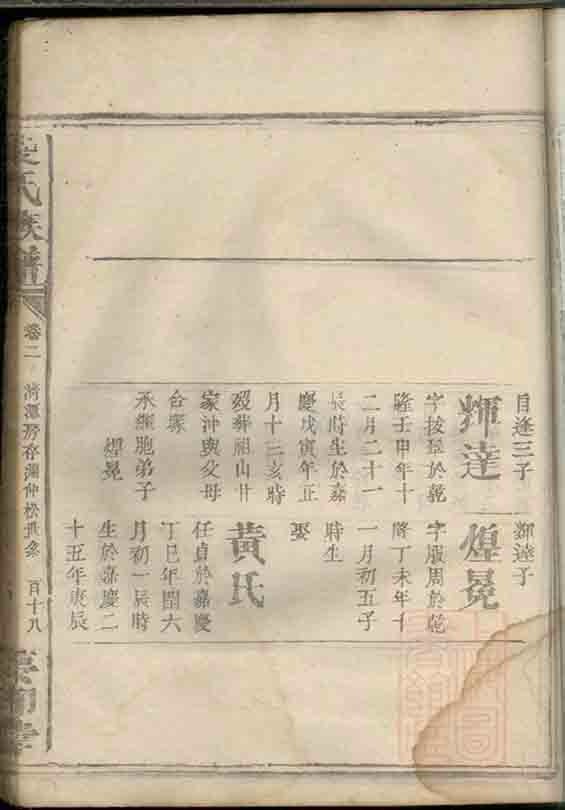 目逵三子
輝達
字拔臣於乾
隆壬申年十
二月二十一
辰時生於嘉
慶戊寅年正
月十三亥時
歿葬祖山廿
家冲與父母
合塚
承繼胞弟子
煌冕
輝逵子
煌冕
字展周於乾
隆丁未年十
一月初五子
時生
娶
黃氏
任貞於嘉慶
丁巳年閏六
月初一辰時
生於嘉慶二
十五年庚辰
氏族譜
卷二
房
仲松世系
百十八